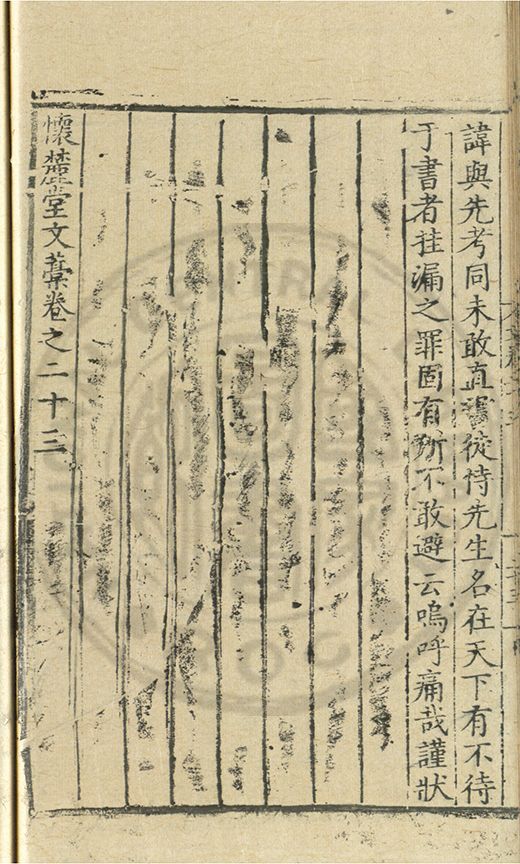 諱與先考同未敢直書從恃先生名在天下有不待
于書者挂漏之罪固有所不敢避云嗚呼痛哉謹狀
懷麓堂文藁卷之二十三